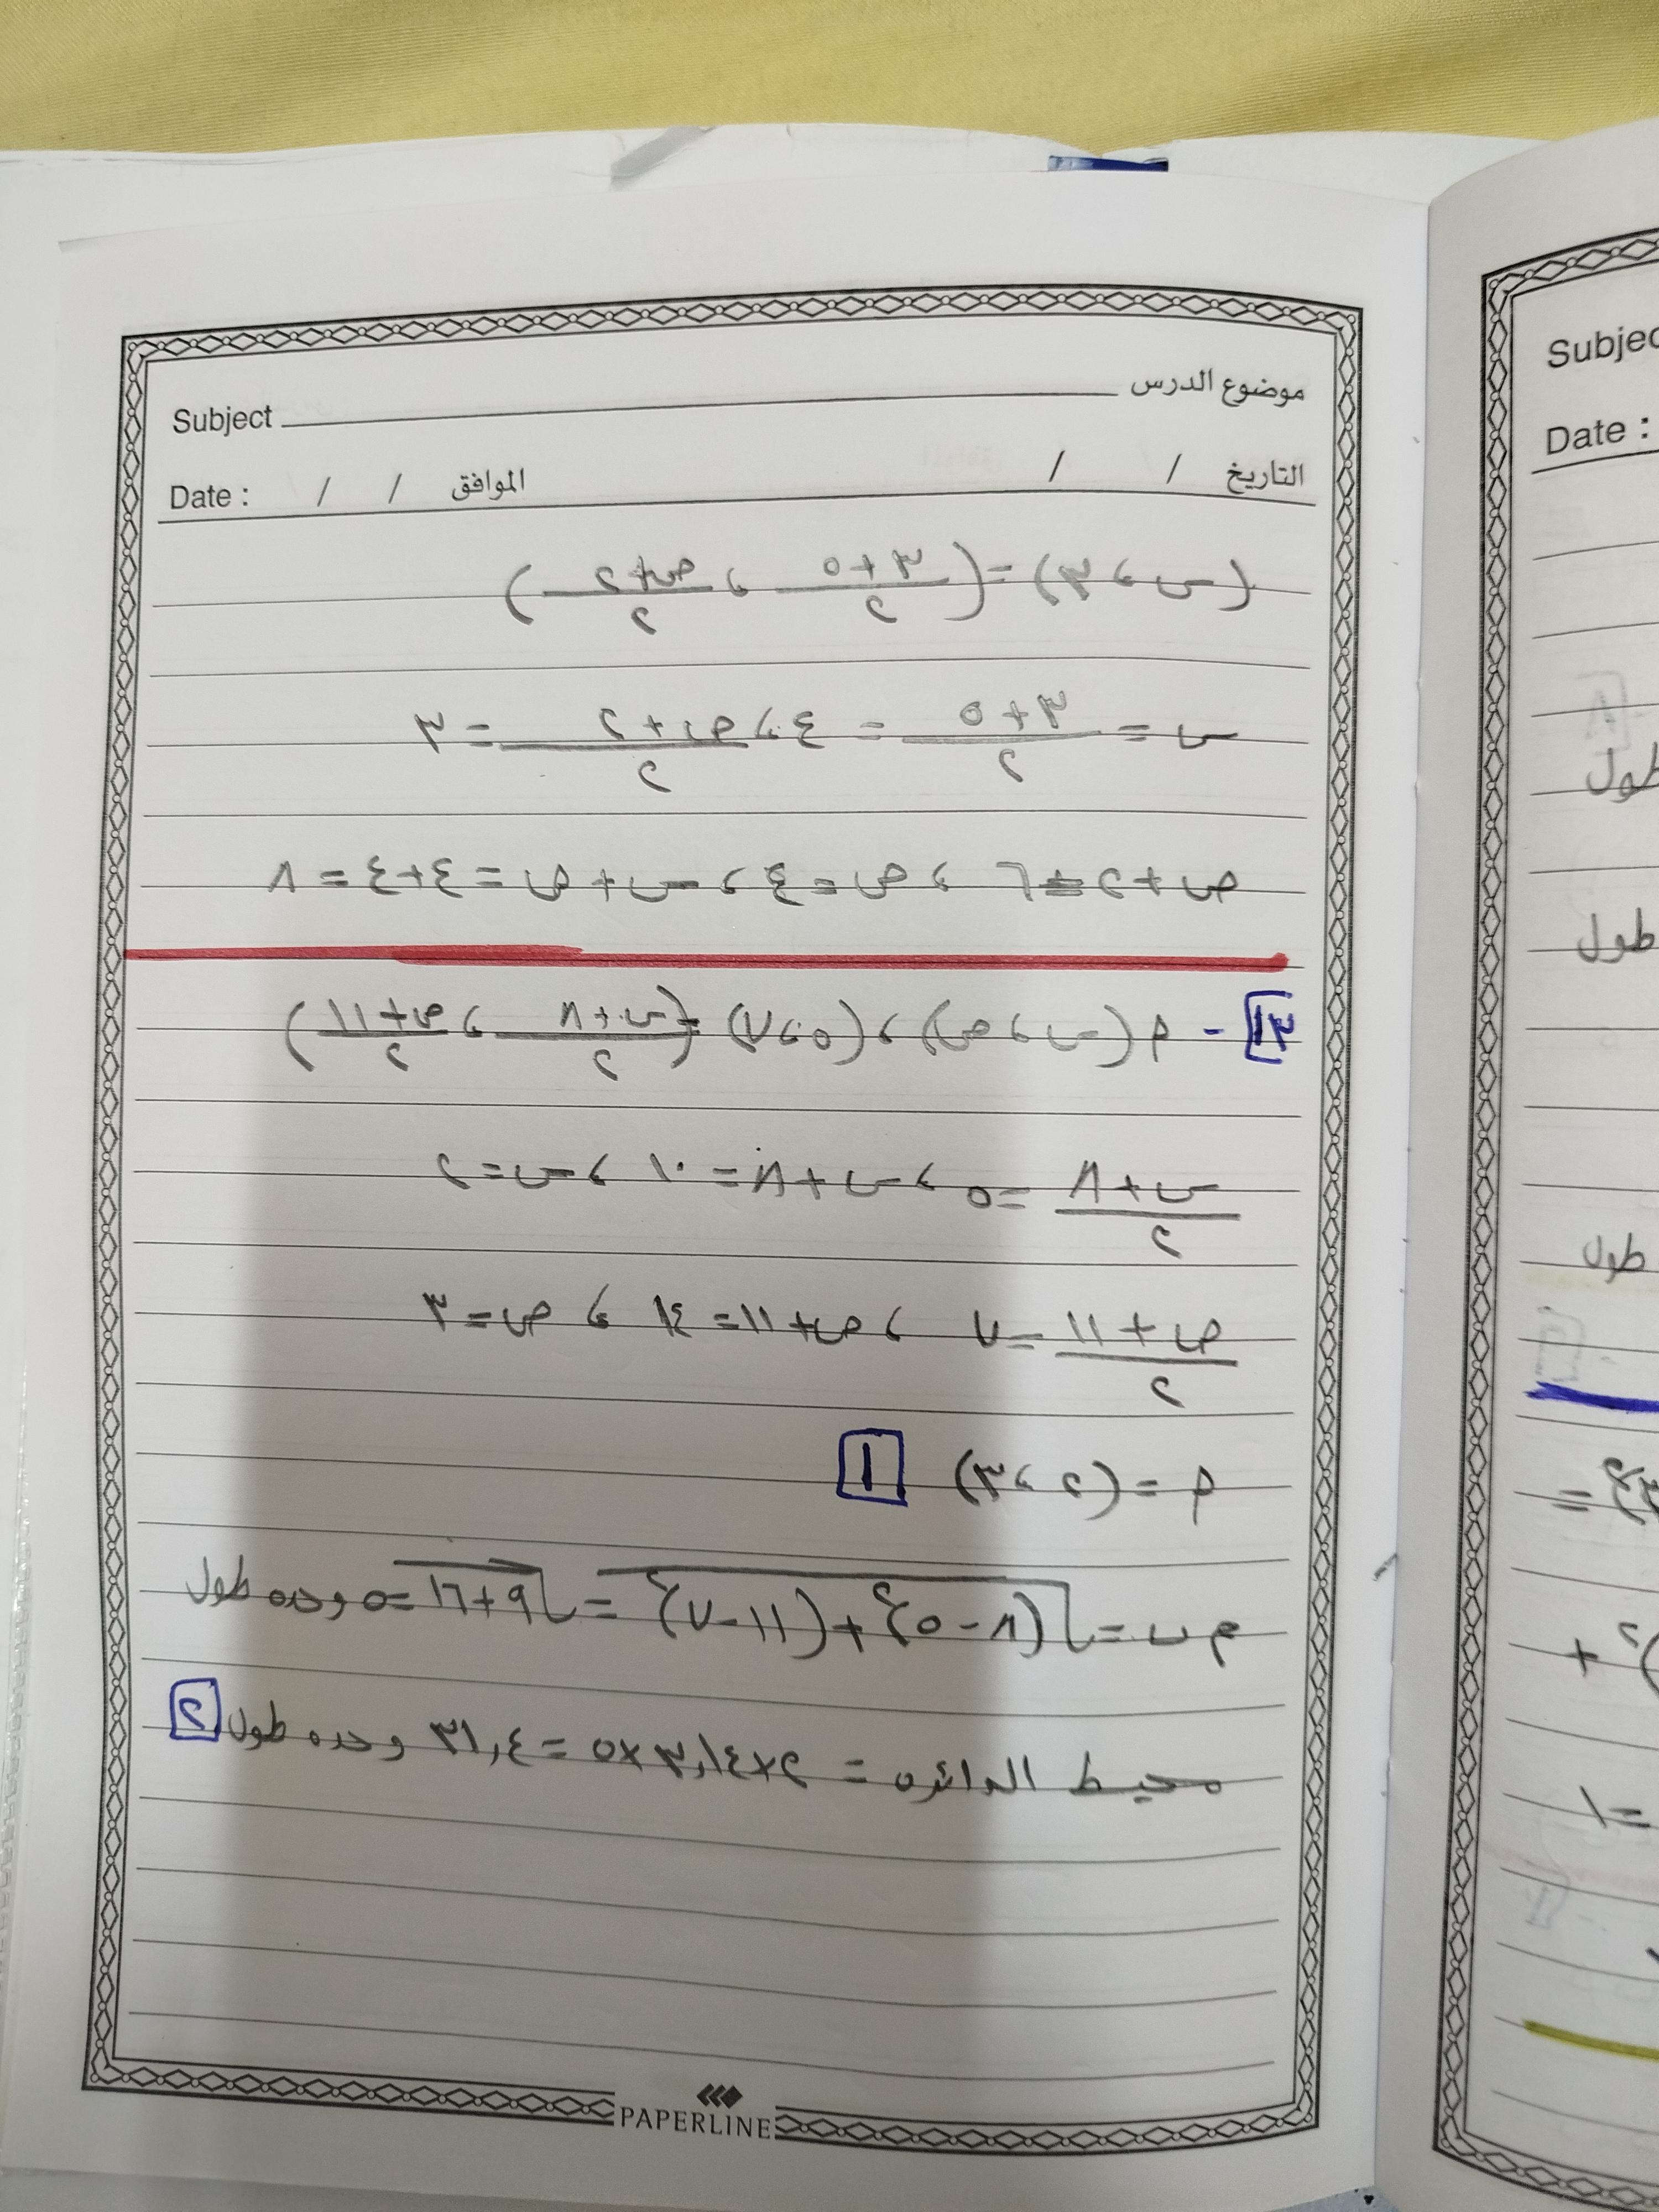 موضوع الدرس
Subject
التاريخ / / الموافق / / Date :
(س ، ٣) = (٣+٥/٢ ، ص+٢/٢)
س = ٣+٥/٢ = ٤ ، ص+٢/٢ = ٣
ص+٢=٦ ، ص=٤ ، س+ص=٤+٤=٨
١٣ - م (س ، ص) ، (٥ ، ٧) = (س+٨/٢ ، ص+١١/٢)
س+٨/٢ = ٥ ، س+٨=١٠ ، س=٢
ص+١١/٢ = ٧ ، ص+١١=١٤ ، ص=٣
م = (٢ ، ٣) ١
م ں = √(٨-٥)²+(١١-٧)² = √٩+١٦ = ٥ وحده طول
محيط الدائره = ٢×٣,١٤×٥ = ٣١,٤ وحده طول ٢
PAPERLINE
Subjec
Date :
طول
طول
طول